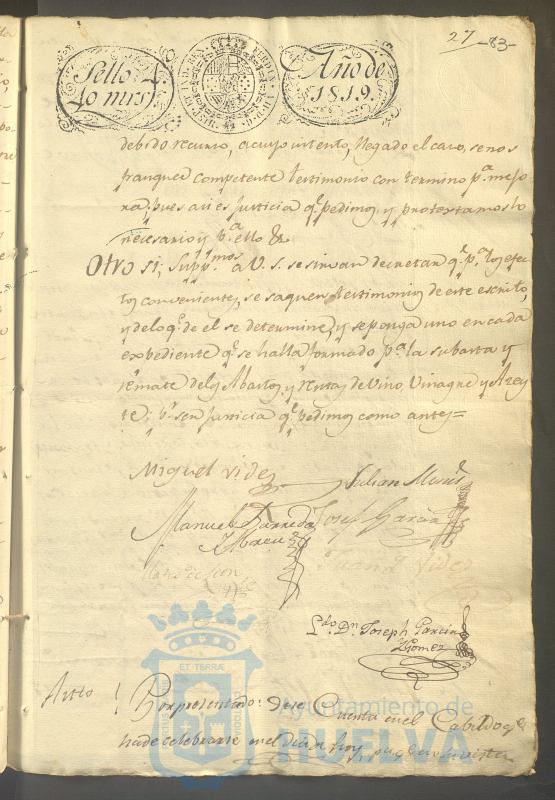 27 -83-
Sello 4º
40 mrs
HISP. ET IND. REX
Año de
1819.
debido recurso, a cuyo intento, llegado el caso, se nos
franquee competente testimonio con termino p.ª mejo
ra, pues asi es justicia q.e pedimos, y protestamos lo
necesario y p.ª ello &.
Otro si; Supp.mos a V. S. se sirvan decretar q.e p.ª los efec
tos convenientes, se saquen testimonios de este escrito,
y de lo q.e de el se determine, y se ponga uno en cada
expediente q.e se halla formado p.ª la subasta y
remate de los Abastos, y rentas de Vino, Vinagre y Azey
te; p.r ser justicia q.e pedimos como antes=
Miguel Videz
Julian
Manuel Barreda Josef Garcia
y Abreu
Juan Videz
L.do D.n Joseph Garcia
y Gomez
ET TERRÆ
Ayuntamiento de
HUELVA
Auto Por presentado: dese Cuenta en el Cabildo q.e
ha de celebrarse en el dia de hoy,